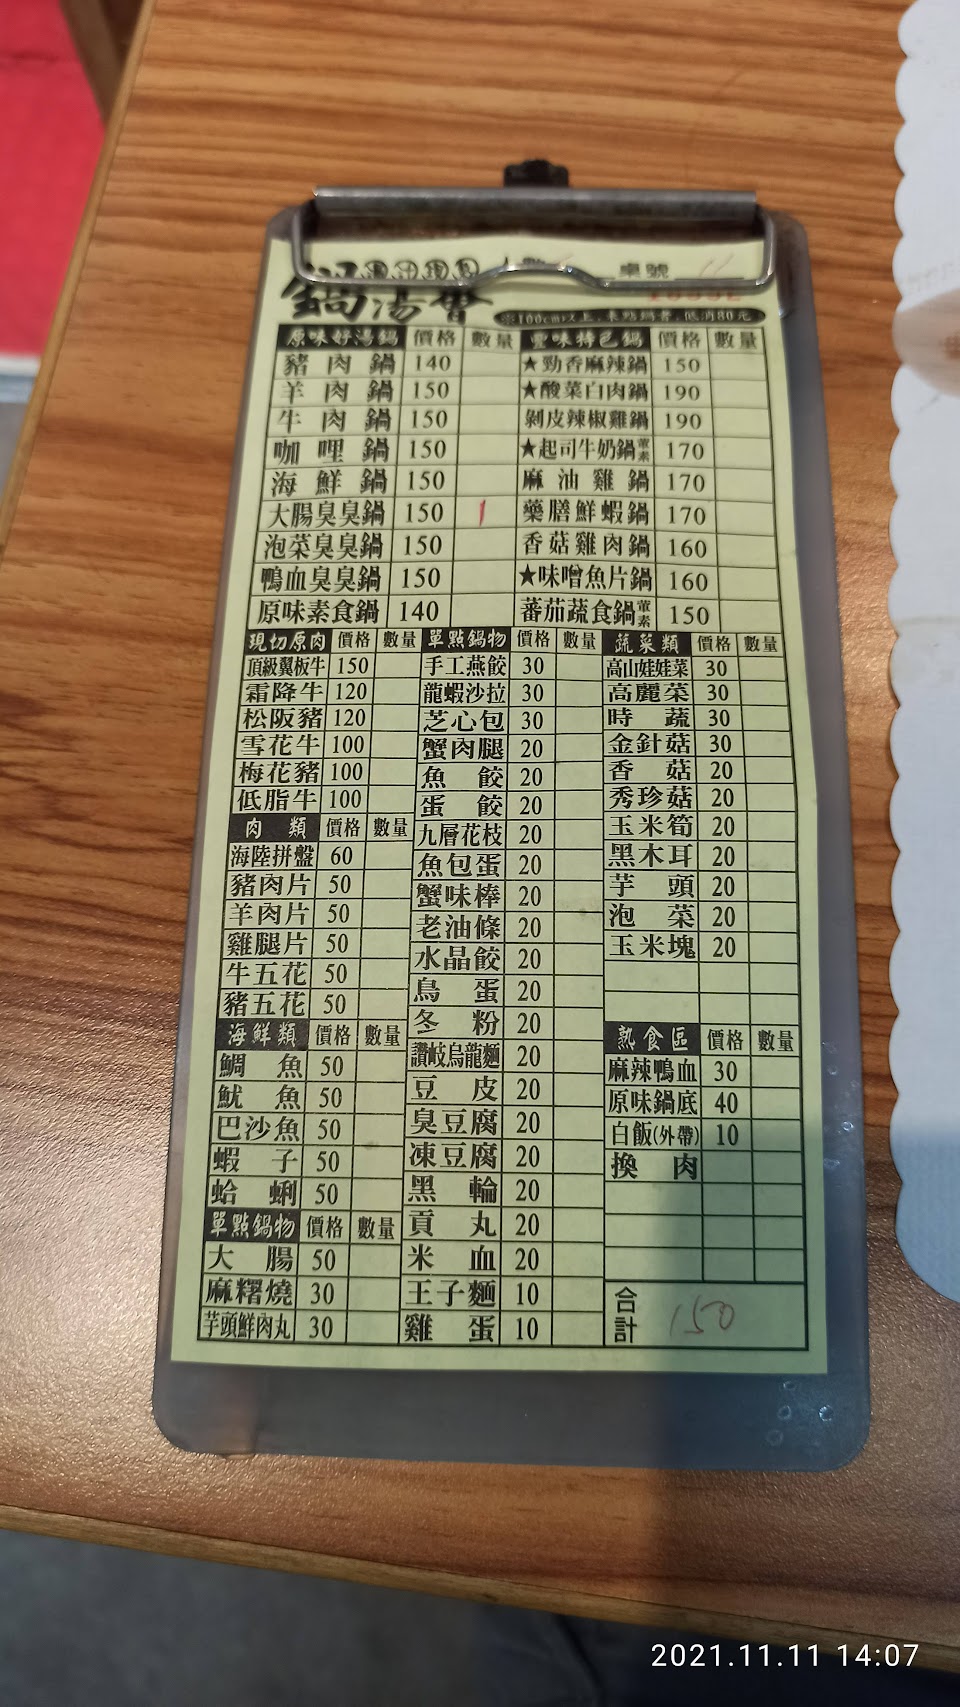 桌號
鍋湯會
※100cm以上,未點鍋者,低消80元
原味好湯鍋 價格 數量
豬肉鍋 140
羊肉鍋 150
牛肉鍋 150
咖哩鍋 150
海鮮鍋 150
大腸臭臭鍋 150 1
泡菜臭臭鍋 150
鴨血臭臭鍋 150
原味素食鍋 140
豐味特色鍋 價格 數量
★勁香麻辣鍋 150
★酸菜白肉鍋 190
剝皮辣椒雞鍋 190
★起司牛奶鍋葷素 170
麻油雞鍋 170
藥膳鮮蝦鍋 170
香菇雞肉鍋 160
★味噌魚片鍋 160
蕃茄蔬食鍋葷素 150
現切原肉 價格 數量
頂級翼板牛 150
霜降牛 120
松阪豬 120
雪花牛 100
梅花豬 100
低脂牛 100
肉類 價格 數量
海陸拼盤 60
豬肉片 50
羊肉片 50
雞腿片 50
牛五花 50
豬五花 50
海鮮類 價格 數量
鯛魚 50
魷魚 50
巴沙魚 50
蝦子 50
蛤蜊 50
單點鍋物 價格 數量
大腸 50
麻糬燒 30
芋頭鮮肉丸 30
單點鍋物 價格 數量
手工燕餃 30
龍蝦沙拉 30
芝心包 30
蟹肉腿 20
魚餃 20
蛋餃 20
九層花枝 20
魚包蛋 20
蟹味棒 20
老油條 20
水晶餃 20
鳥蛋 20
冬粉 20
讚岐烏龍麵 20
豆皮 20
臭豆腐 20
凍豆腐 20
黑輪 20
貢丸 20
米血 20
王子麵 10
雞蛋 10
蔬菜類 價格 數量
高山娃娃菜 30
高麗菜 30
時蔬 30
金針菇 30
香菇 20
秀珍菇 20
玉米筍 20
黑木耳 20
芋頭 20
泡菜 20
玉米塊 20
熟食區 價格 數量
麻辣鴨血 30
原味鍋底 40
白飯(外帶) 10
換肉
合計 150
2021.11.11 14:07